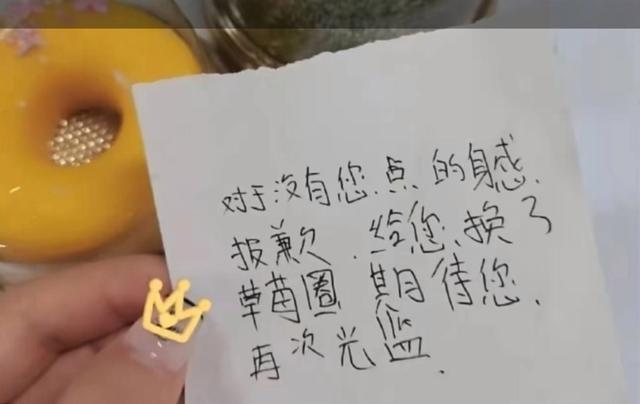 对于没有您点的自感.
报歉.给您换了
草莓圈 期待您.
再次光监.